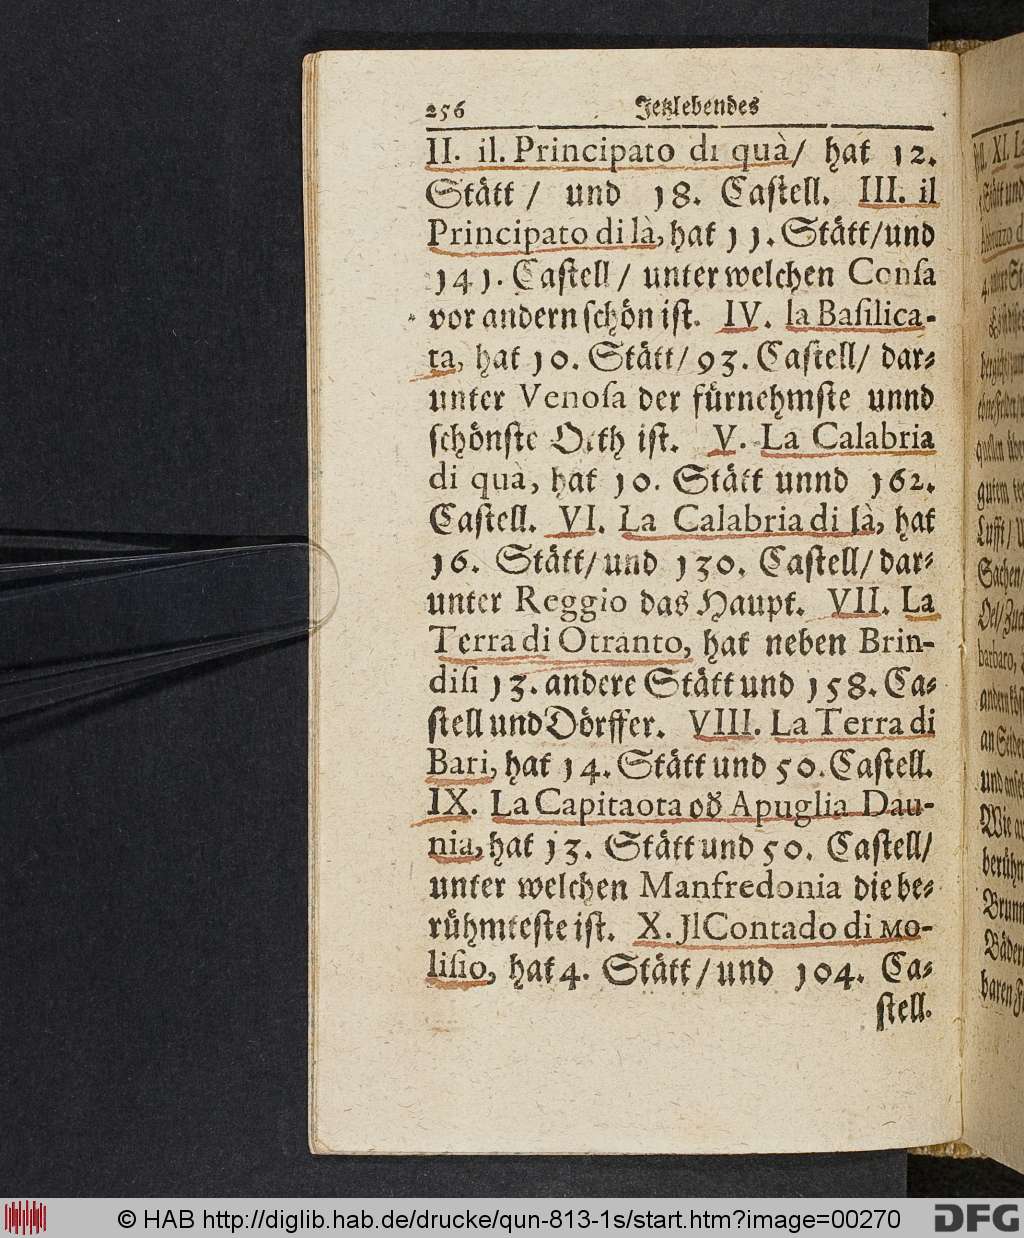 256 Jetzlebendes
II. il. Principato di quà/ hat 12.
Stätt / und 18. Caſtell. III. il
Principato di là, hat 11. Stätt/und
141. Caſtell / unter welchen Conſa
vor andern ſchön iſt. IV. la Baſilica-
ta, hat 10. Stätt/ 93. Caſtell/ dar-
unter Venoſa der fürnehmſte unnd
ſchönſte Orth iſt. V. La Calabria
di quà, hat 10. Stätt unnd 162.
Caſtell. VI. La Calabria di là, hat
16. Stätt/ und 130. Caſtell/ dar-
unter Reggio das Haupt. VII. La
Terra di Otranto, hat neben Brin-
diſi 13. andere Stätt und 158. Ca-
ſtell und Dörffer. VIII. La Terra di
Bari, hat 14. Stätt und 50. Caſtell.
IX. La Capitaota od Apuglia Dau-
nia, hat 13. Stätt und 50. Caſtell/
unter welchen Manfredonia die be-
rühmteſte iſt. X. Jl Contado di Mo-
liſio, hat 4. Stätt / und 104. Ca-
ſtell.
XI. L
© HAB http://diglib.hab.de/drucke/qun-813-1s/start.htm?image=00270
DFG